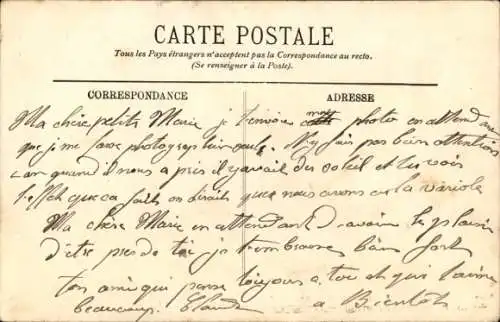 CARTE POSTALE
Tous les Pays étrangers n'acceptent pas la Correspondance au recto.
(Se renseigner à la Poste).
CORRESPONDANCE
ADRESSE
Ma chère petite Marie je t'envoie mot photo en attendant
que je me fasse photographier seule. N'y fait pas bien attention
car quand il nous a pris il y avait du soleil et tu vois
l'effet que ca fait on dirait que nous avons eu la variole
Ma chère Marie en attendant d'avoir le plaisir
d'être près de toi je t'embrasse bien fort
ton ami qui pense toujours a toi et qui t'aime
beaucoup. a Bientôt